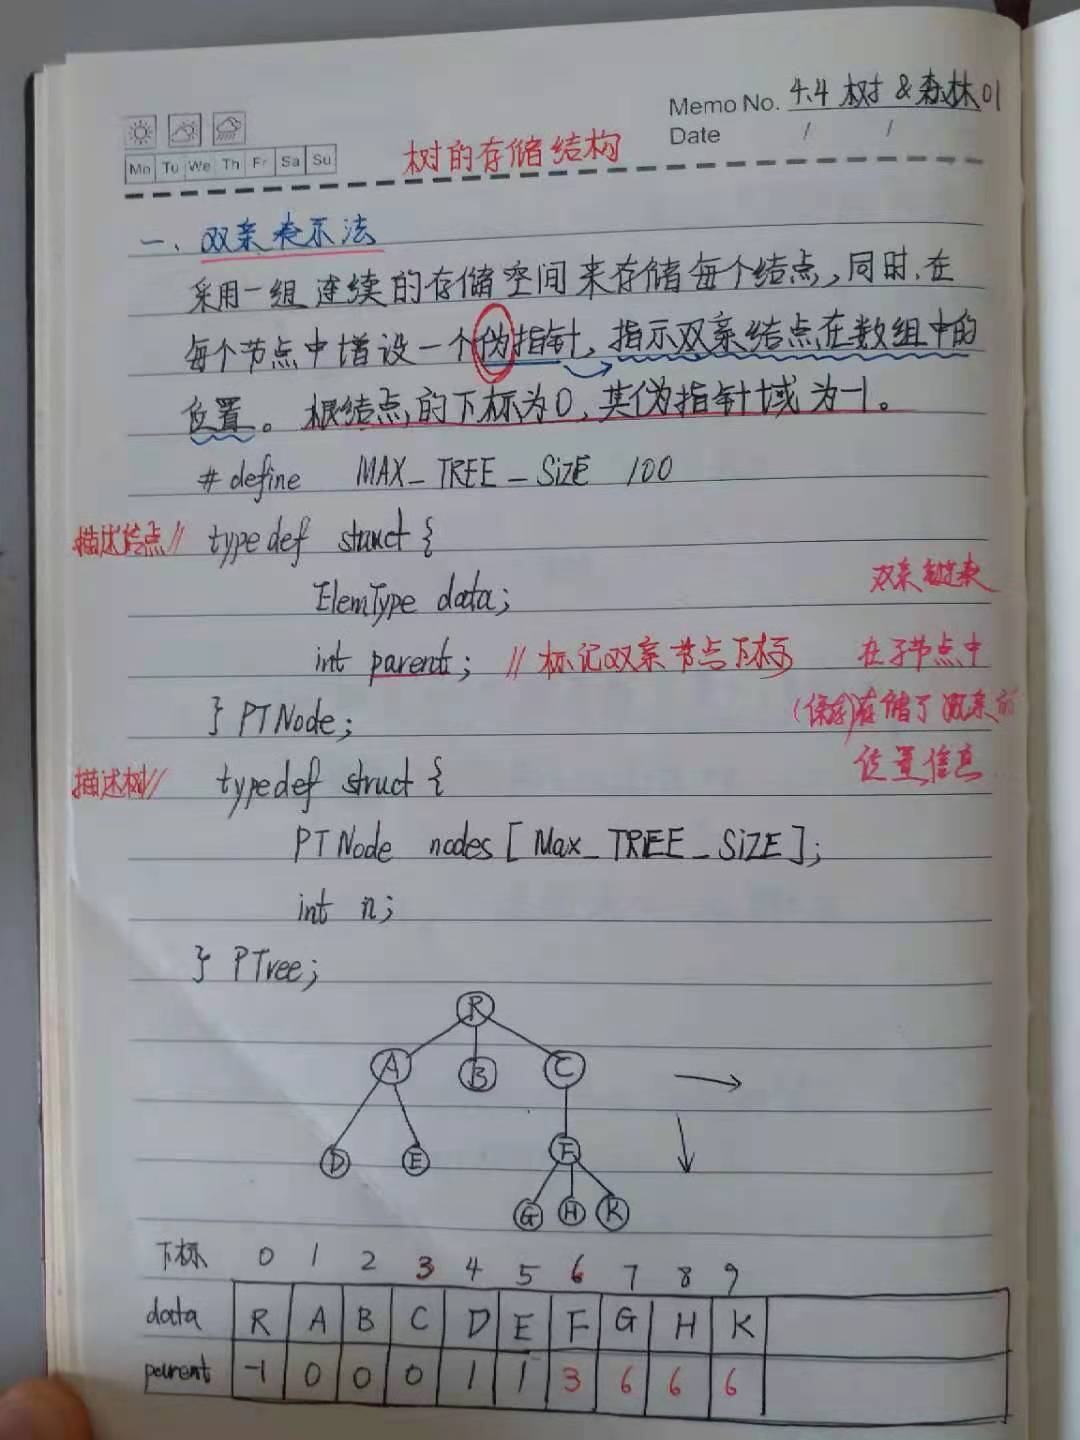 Memo No. 4.4 树 & 森林 01
Date / /
Mo Tu We Th Fr Sa Su
树的存储结构
一、双亲表示法
采用一组连续的存储空间来存储每个结点，同时,在
每个节点中增设一个伪指针，指示双亲结点在数组中的
位置。根结点的下标为0，其伪指针域为-1。
#define MAX_TREE_SiZE 100
描述结点// typedef struct {
ElemType data;
双亲
int parent; // 标记双亲节点下标
在子节点中
(保存)存储了双亲的
位置信息
} PTNode;
描述树// typedef struct {
PTNode nodes [Max_TREE_SiZE];
int n;
} PTree;
R
A B C
D E F
G H K
下标 0 1 2 3 4 5 6 7 8 9
data R A B C D E F G H K
parent -1 0 0 0 1 1 3 6 6 6